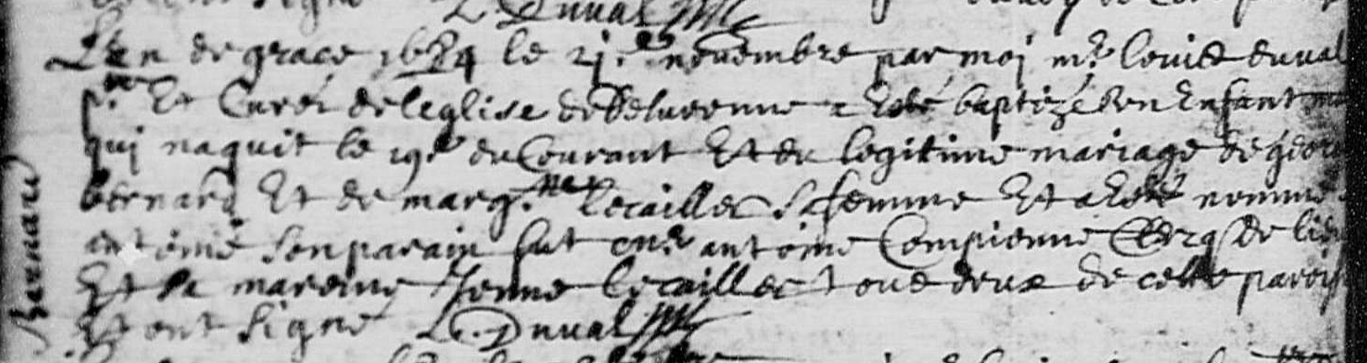 L. Duval
L'an de grace 1684 le 21.e novembre par moi mr. Louis duval
p.re Et Curé de l'eglise de a esté baptizé un Enfant
qui naquit le 19e du Courant Et du legitime mariage de
bernard Et de marg.te Lecailler sa femme Et a esté nommé
antoine son parain fut antoine Compienne Clerq de lieu
Et sa mareine Jenne Lecailler tous deux de cette
Et ont signé L. Duval
bernard